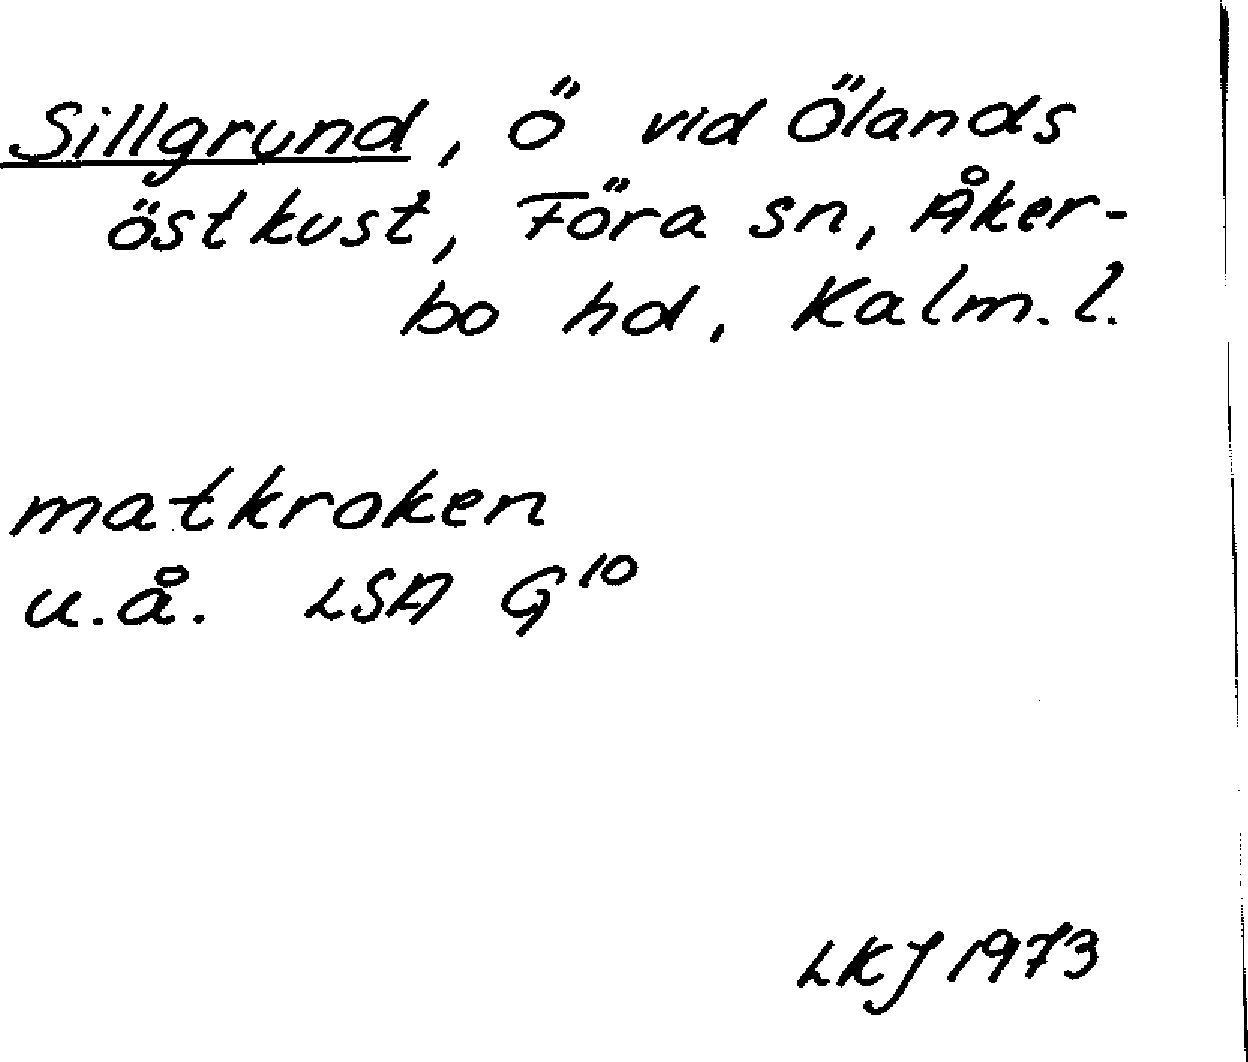 Sillgrund, ö vid Ölands
östkust, Föra sn, Åker-
bo hd, Kalm. l.
matkroken
u.å. LSA G¹⁰
LKJ 1973